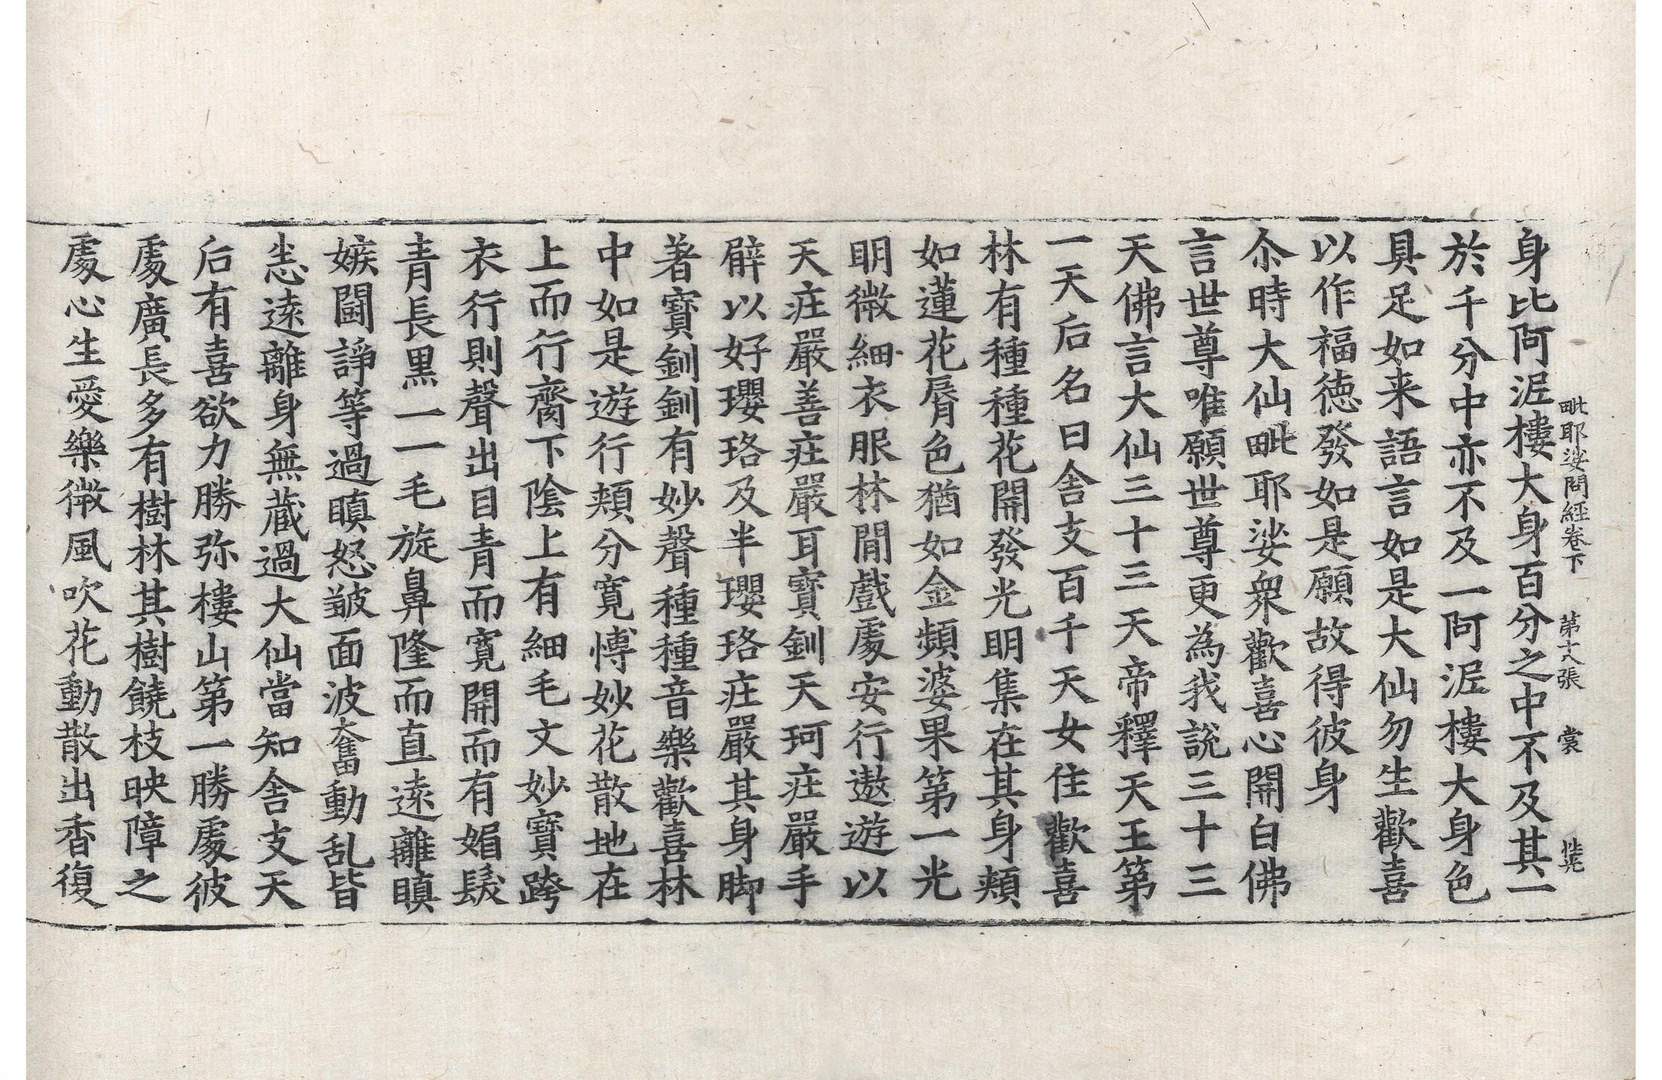 毗耶娑問經卷下 第十八張 裳
身比阿渥樓大身百分之中不及其一
於千分中亦不及一阿渥樓大身色
具足如来語言如是大仙勿生歡喜
以作福德發如是願故得彼身
尒時大仙毗耶娑衆歡喜心開白佛
言世尊唯願世尊更為我說三十三
天佛言大仙三十三天帝釋天王第
一天后名曰舎支百千天女住歡喜
林有種種花開發光明集在其身頰
如蓮花脣色猶如金頻婆果第一光
明微細衣服林間戲處安行遨遊以
天莊嚴善莊嚴耳寶釧天珂莊嚴手
臂以好瓔珞及半瓔珞莊嚴其身脚
著寶釧釧有妙聲種種音樂歡喜林
中如是遊行頰分寬愽妙花散地在
上而行齊下陰上有細毛文妙寶跨
衣行則聲出目青而寬開而有媚髮
青長黒一一毛旋鼻隆而直遠離瞋
嫉鬪諍等過瞋怒皺面波奮動乱皆
恙遠離身無蔵過大仙當知舎支天
后有喜欲力勝弥樓山第一勝處彼
處廣長多有樹林其樹饒枝映障之
處心生愛樂微風吹花動散出香復